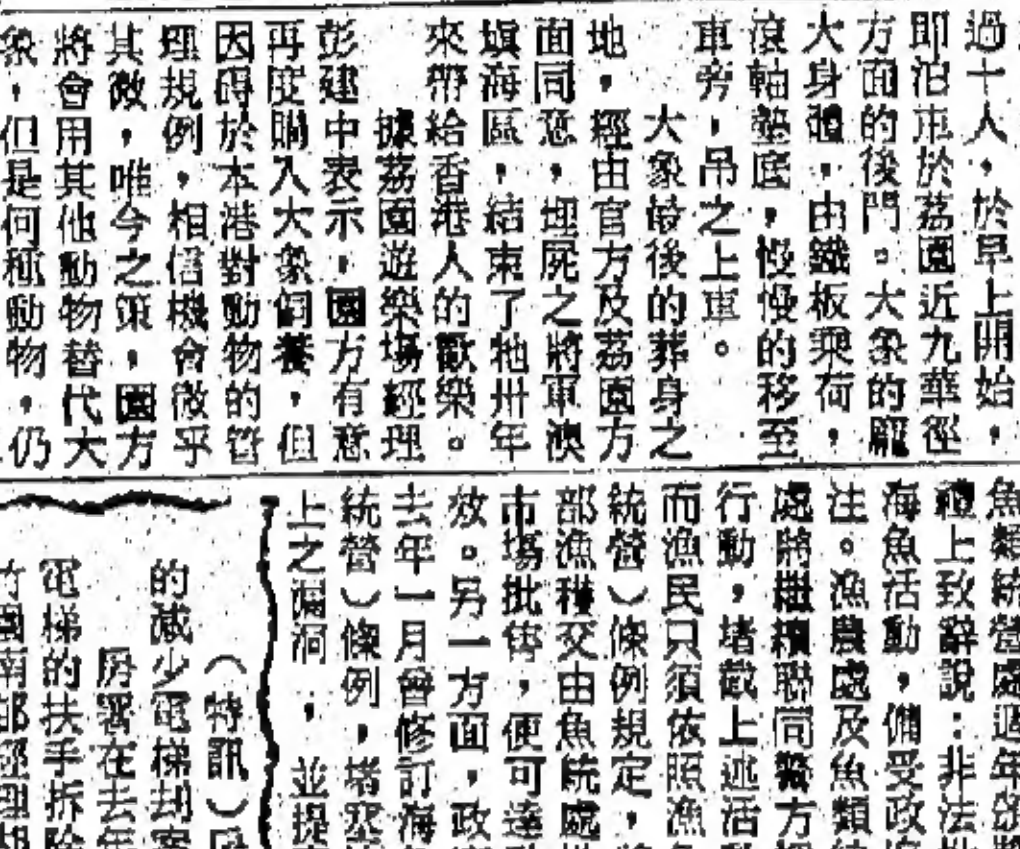 過十人，於早上開始，
即泊車於荔園近九華徑
方面的後門。大象的龐
大身體，由鐵板乘荷，
滾軸墊底，慢慢的移至
車旁，吊之上車。
大象最後的葬身之
地，經由官方及荔園方
面同意，埋屍之將軍澳
填海區，結束了牠卅年
來帶給香港人的歡樂。
據荔園遊樂場經理
彭建中表示，園方有意
再度購入大象飼養，但
因碍於本港對動物的管
理規例，相信機會微乎
其微，唯今之策，園方
將會用其他動物替代大
象，但是何種動物，仍
魚類統營處週年頒獎
禮上致辭說：非法
海魚活動，備受政
注。漁農處及魚類統
處將繼續聯同警方
行動，堵截上述活
而漁民只須依照漁
統營）條例規定，
部漁穫交由魚統處
市場批售，便可達
放。另一方面，政
去年一月曾修訂海
統營）條例，堵塞
上之漏洞；並提
（特訊）
的減少電梯刦案
房署在去年
電梯的扶手拆除
竹園南邨經理